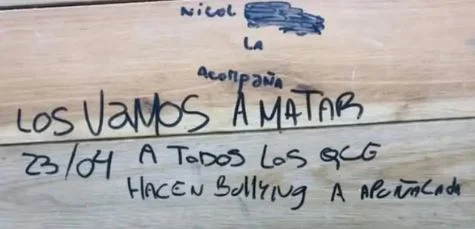 Nicol
LA
Acompaña
LOS VaMOS A MATAR
23/04 A TODOS LOS QUE
HACEN Bullying A APUÑALADA